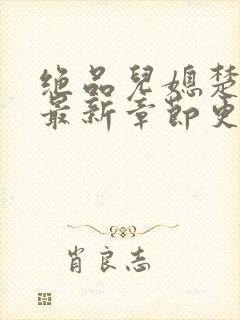 绝品兒媳楚
最新章節更
肖良志